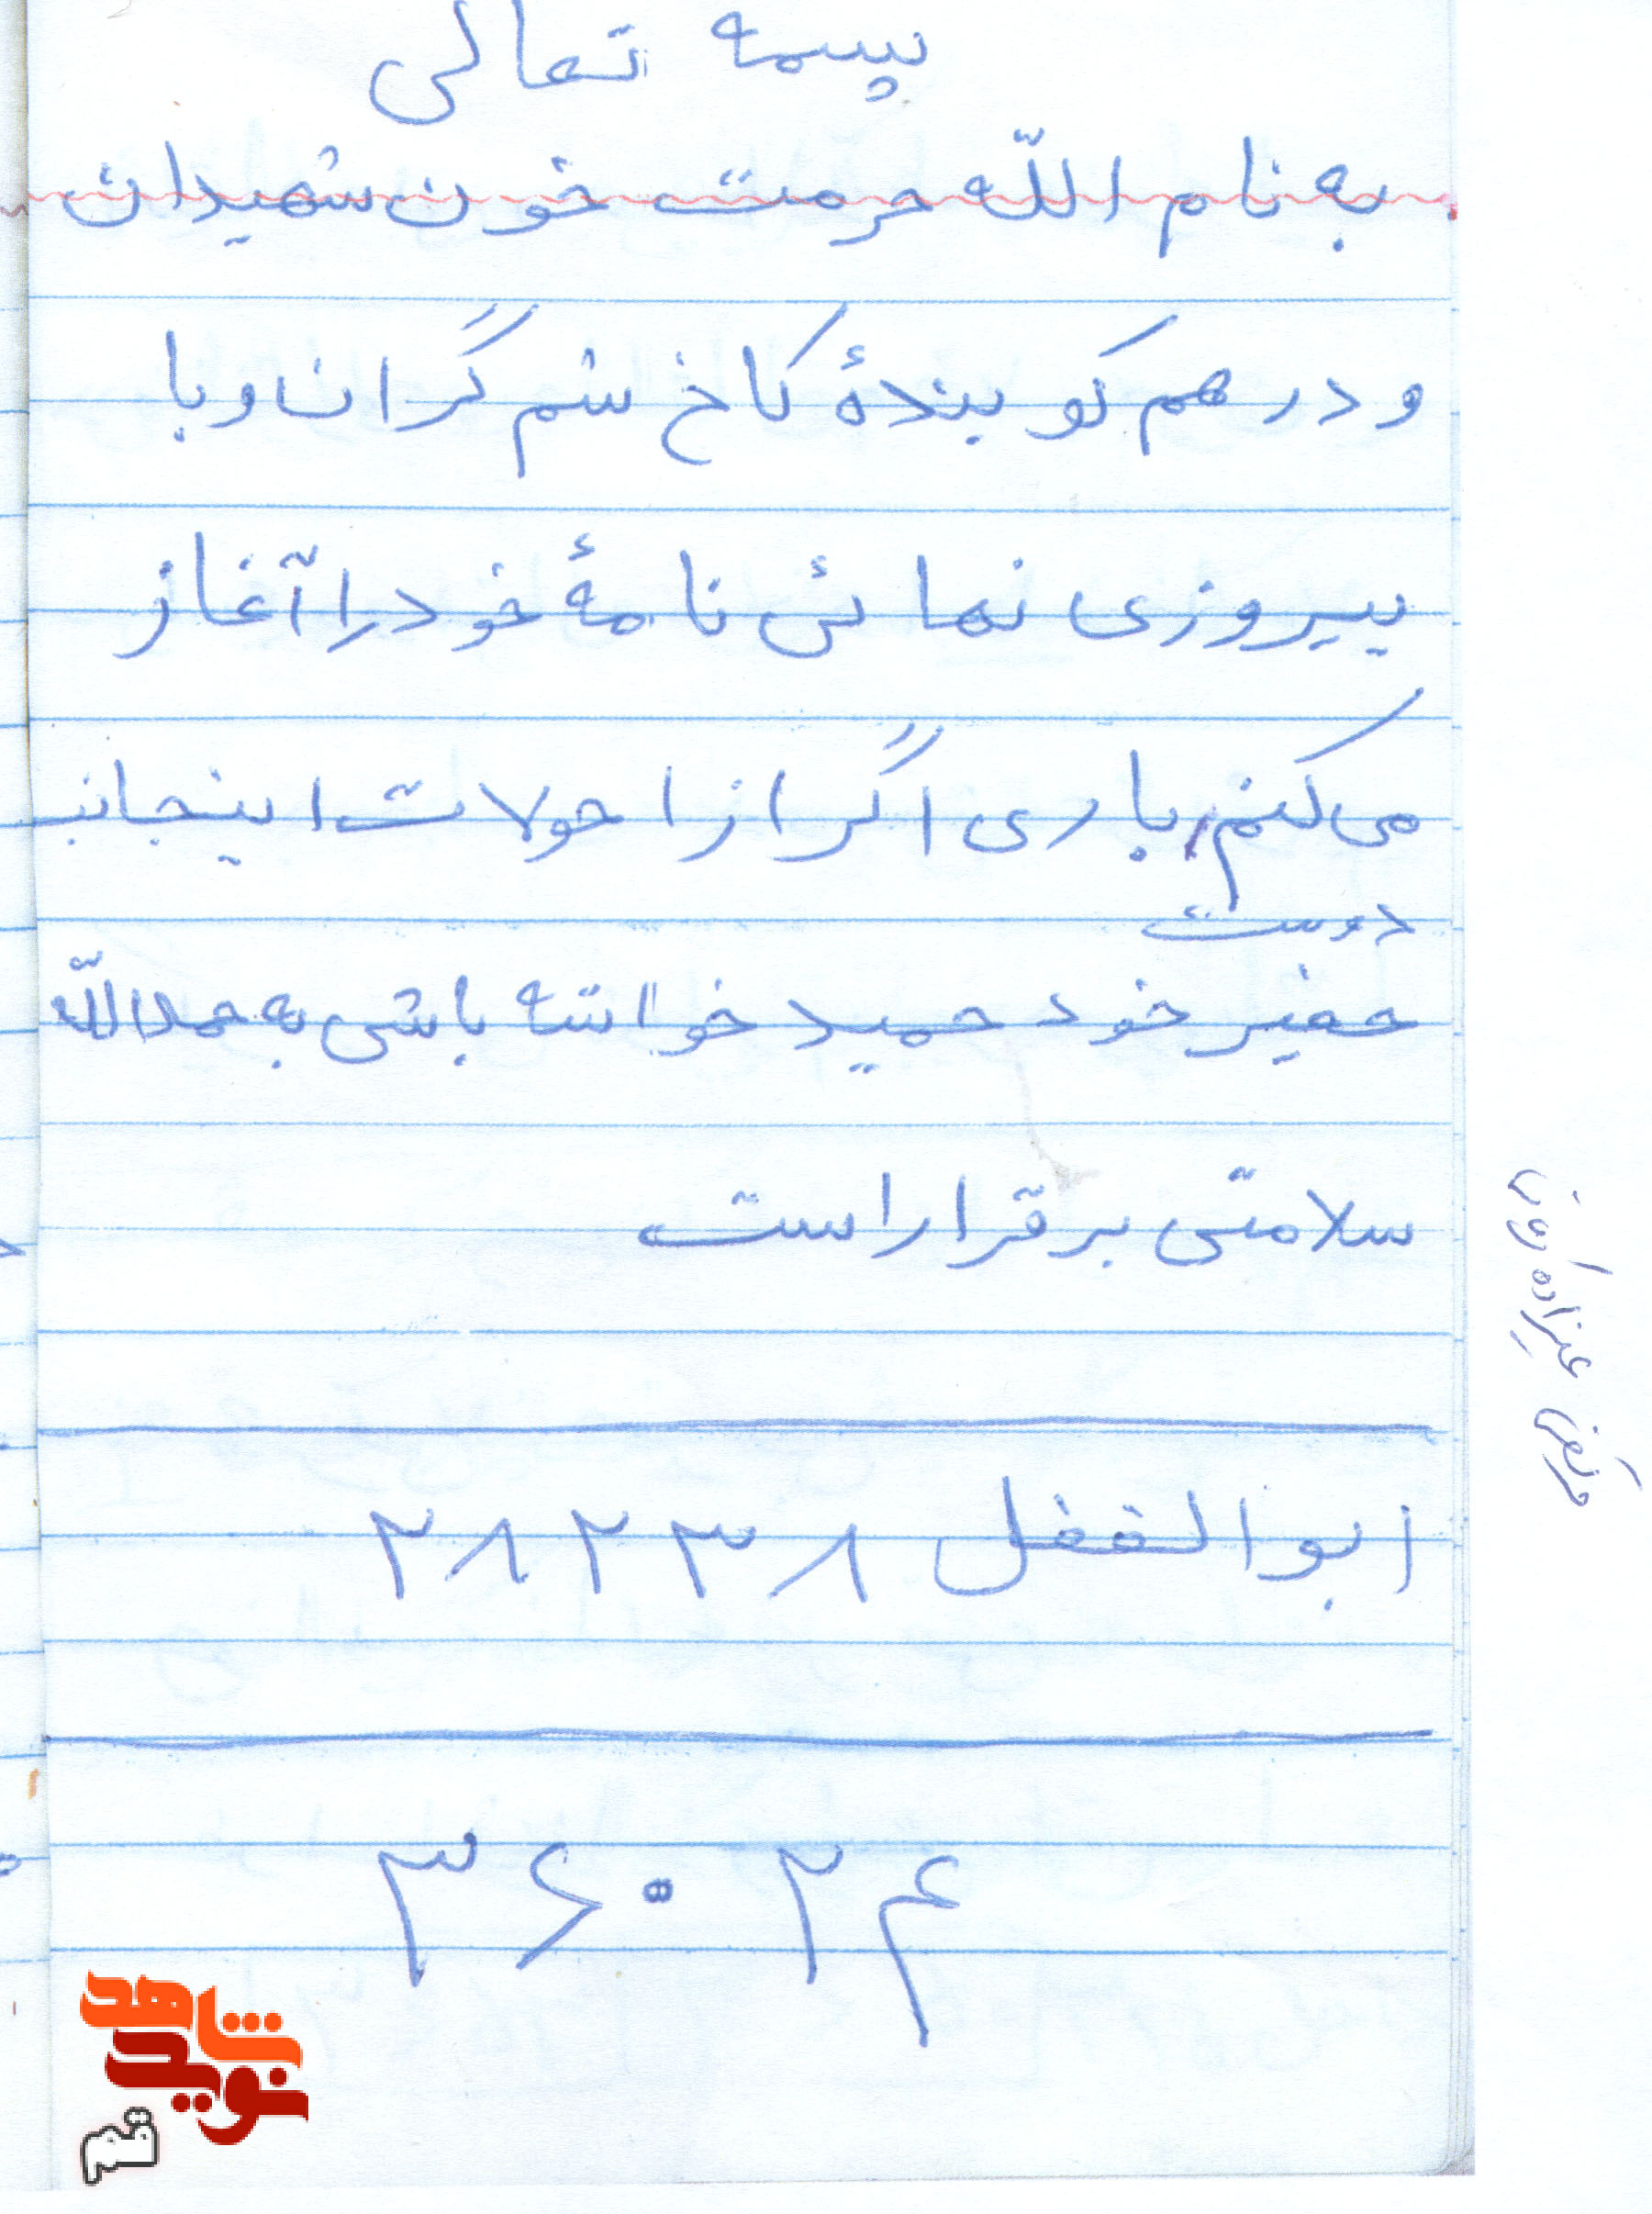 بسمه تعالی
به نام اللّه حرمت خون شهیدان
و در هم کو بندهٔ کاخ ستم گران و با
پیروزی نهائی نامهٔ خود را آغاز
می کنم، باری اگر از احولات اینجانب
دوست
حقیر خود حمید خواسته باشی به حمداللّه
سلامتی برقرار است
ابوالفضل ۲۸۲۳۸
۳۶۰۲۴
شاهد
نوید
قم